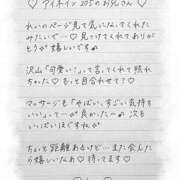 ♡ アイネイン 205のお兄さん ♡
れいのページ見て気になってくれた
みたいで… ♡ 見つけてくれてありが
とうが嬉しいです♪
沢山「可愛い！」って言ってくれて照れ
ちゃいた♡ もっと自合わせて？♡
マッサージも「やばい、すごい気持ち
いいぃょ」って〜が良かった〜♪ 次も
いいっぱほですねが
ちょいと距離あるけど… また会えた
ら嬉しいなあ♡ 待ってます♡